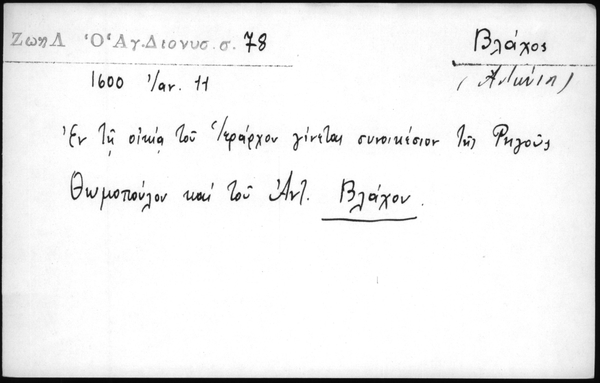 Ζωη Λ Ὁ Ἁγ. Διονυσ. σ. 78
Βλάχος
(Ἀντώνιος)
1600 Ἰαν. 11
Ἐν τῇ οἰκίᾳ τοῦ Ἱεράρχου γίνεται συνοικέσιον τῆς Ρηγούς
Θωμοπούλου καὶ τοῦ Ἀντ. Βλάχου.